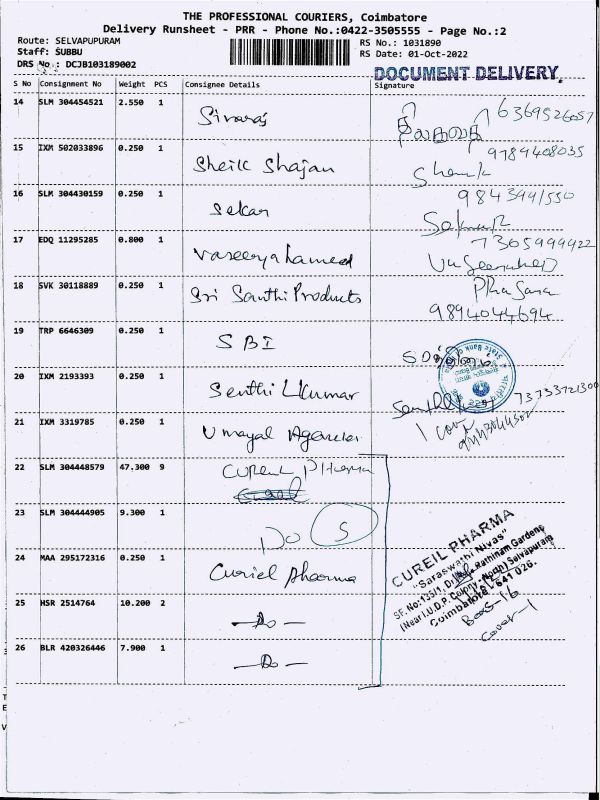 THE PROFESSIONAL COURIERS, Coimbatore
Delivery Runsheet - PRR - Phone No.:0422-3505555 - Page No.:2
Route: SELVAPUPURAM
Staff: SUBBU
DRS No.: DCJB103189002
RS No.: 1031890
RS Date: 01-Oct-2022
DOCUMENT DELIVERY.
S No Consignment No Weight PCS Consignee Details Signature
14 SLM 304454521 2.550 1 Sivaraj 6369526057
15 IXM 502033896 0.250 1 Sheik Shajan 9789408035
16 SLM 304430159 0.250 1 Sekar 9843991550
17 EDQ 11295285 0.800 1 Vaseerya hameed 7365999422
18 SVK 30118889 0.250 1 Sri Santhi Products 9894044694
19 TRP 6646309 0.250 1 SBI
20 IXM 2193393 0.250 1 Senthil Kumar
21 IXM 3319785 0.250 1 Umayal Agencies 1 Cover
22 SLM 304448579 47.300 9 CUREIL PHARMA
23 SLM 304444905 9.300 1 DO 5
24 MAA 295172316 0.250 1 Curiel Pharma
25 HSR 2514764 10.200 2 — Do —
26 BLR 420326446 7.900 1 — Do —
State Bank of
CUREIL PHARMA
"Saraswathi Nivas"
SF. No:135/1, Rathinam Gardens
(Near I.U.D.P. Colony, North) Selvapuram
Coimbatore - 641 026.
Box-16
Cover-1